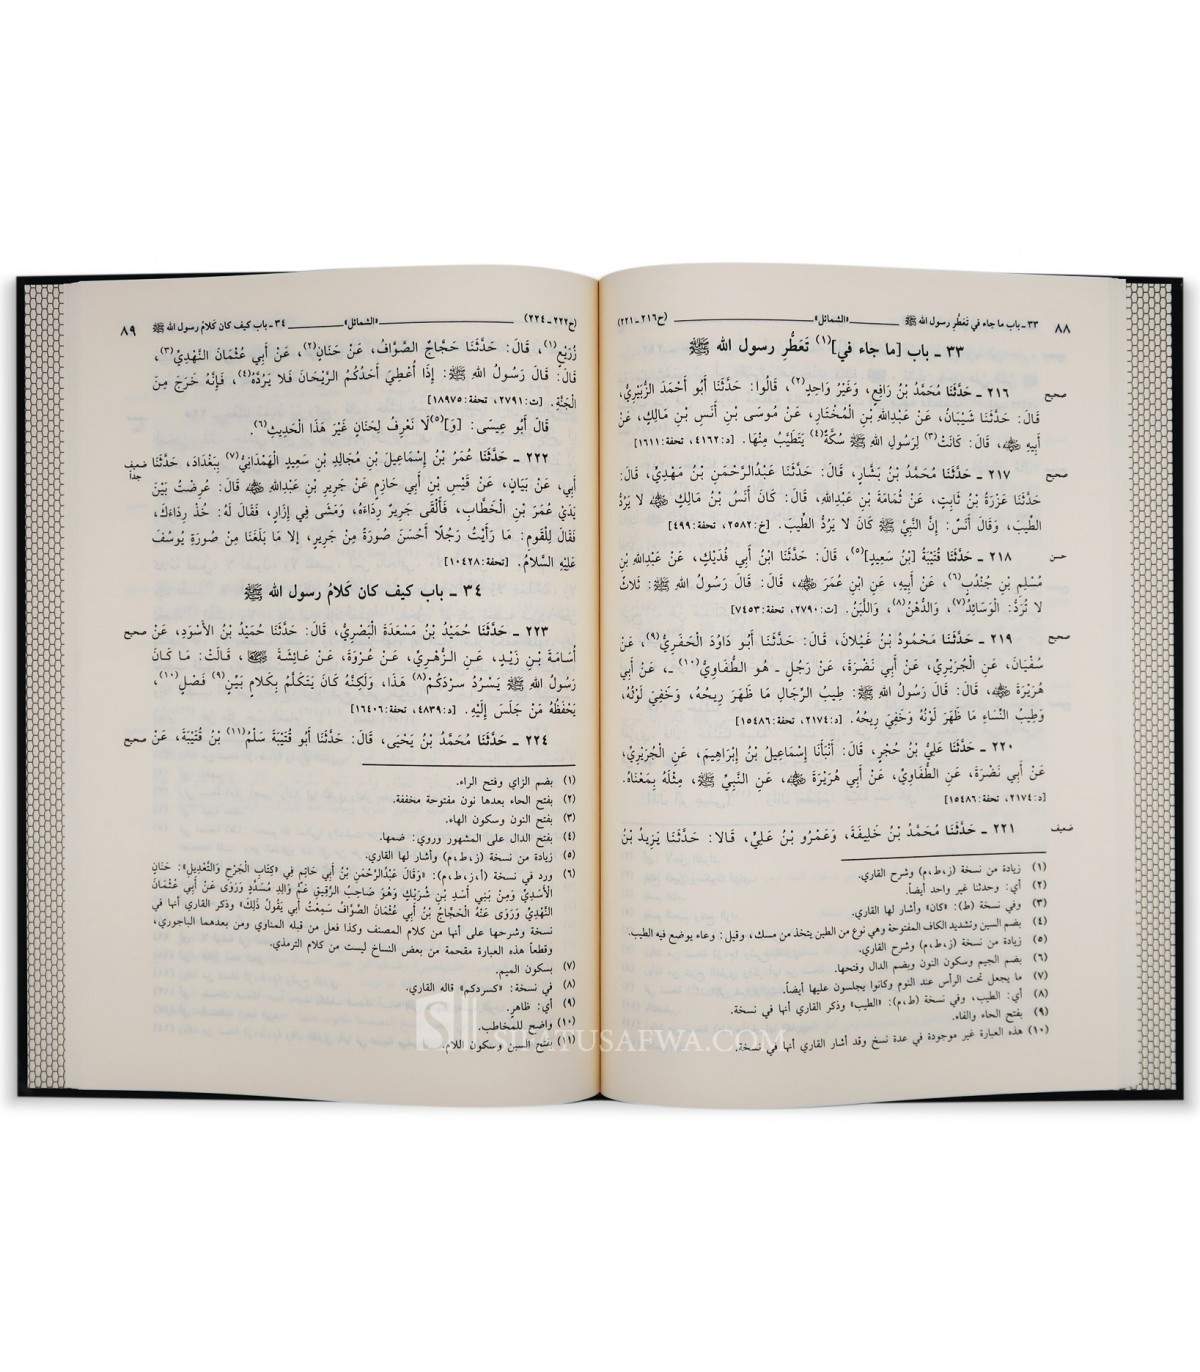 ٨٨ ٣٣ ـ باب ما جاء في تَعَطُّرِ رسول الله ﷺ «الشمائل» (ح٢١٦ـ٢٢١)
٣٣ ـ باب [ما جاء في](١) تَعَطُّرِ رسول الله ﷺ
صحيح ٢١٦ ـ حَدَّثَنَا مُحَمَّدُ بْنُ رَافِعٍ، وَغَيْرُ وَاحِدٍ(٢)، قَالُوا: حَدَّثَنَا أَبُو أَحْمَدَ الزُّبَيْرِيُّ،
قَالَ: حَدَّثَنَا شَيْبَانُ، عَنْ عَبْدِاللهِ بْنِ الْمُخْتَارِ، عَنْ مُوسَى بْنِ أَنَسِ بْنِ مَالِكٍ، عَنْ
أَبِيهِ رضي الله عنه، قَالَ: كَانَتْ(٣) لِرَسُولِ اللهِ ﷺ سُكَّةٌ(٤) يَتَطَيَّبُ مِنْهَا. [د:٤١٦٢، تحفة:١٦١١]
صحيح ٢١٧ ـ حَدَّثَنَا مُحَمَّدُ بْنُ بَشَّارٍ، قَالَ: حَدَّثَنَا عَبْدُالرَّحْمَنِ بْنُ مَهْدِيٍّ، قَالَ:
حَدَّثَنَا عَزْرَةُ بْنُ ثَابِتٍ، عَنْ ثُمَامَةَ بْنِ عَبْدِاللهِ، قَالَ: كَانَ أَنَسُ بْنُ مَالِكٍ رضي الله عنه لا يَرُدُّ
الطِّيبَ، وَقَالَ أَنَسٌ: إِنَّ النَّبِيَّ ﷺ كَانَ لا يَرُدُّ الطِّيبَ. [خ:٢٥٨٢، تحفة:٤٩٩]
حسن ٢١٨ ـ حَدَّثَنَا قُتَيْبَةُ [بْنُ سَعِيدٍ](٥)، قَالَ: حَدَّثَنَا ابْنُ أَبِي فُدَيْكٍ، عَنْ عَبْدِاللهِ بْنِ
مُسْلِمِ بْنِ جُنْدُبٍ(٦)، عَنْ أَبِيهِ، عَنِ ابْنِ عُمَرَ رضي الله عنه، قَالَ: قَالَ رَسُولُ اللهِ ﷺ: ثَلاثٌ
لا تُرَدُّ: الْوَسَائِدُ(٧)، وَالدُّهْنُ(٨)، وَاللَّبَنُ. [ت:٢٧٩٠، تحفة:٧٤٥٣]
صحيح ٢١٩ ـ حَدَّثَنَا مَحْمُودُ بْنُ غَيْلانَ، قَالَ: حَدَّثَنَا أَبُو دَاوُدَ الْحَفَرِيُّ(٩)، عَنْ
سُفْيَانَ، عَنِ الْجُرَيْرِيِّ، عَنْ أَبِي نَضْرَةَ، عَنْ رَجُلٍ ـ هُوَ الطُّفَاوِيُّ(١٠) ـ، عَنْ أَبِي
هُرَيْرَةَ رضي الله عنه، قَالَ: قَالَ رَسُولُ اللهِ ﷺ: طِيبُ الرِّجَالِ مَا ظَهَرَ رِيحُهُ، وَخَفِيَ لَوْنُهُ،
وَطِيبُ النِّسَاءِ مَا ظَهَرَ لَوْنُهُ وَخَفِيَ رِيحُهُ. [د:٢١٧٤، تحفة:١٥٤٨٦]
٢٢٠ ـ حَدَّثَنَا عَلِيُّ بْنُ حُجْرٍ، قَالَ: أَنْبَأَنَا إِسْمَاعِيلُ بْنُ إِبْرَاهِيمَ، عَنِ الْجُرَيْرِيِّ،
عَنْ أَبِي نَضْرَةَ، عَنِ الطُّفَاوِيِّ، عَنْ أَبِي هُرَيْرَةَ رضي الله عنه، عَنِ النَّبِيِّ ﷺ، مِثْلَهُ بِمَعْنَاهُ.
[د:٢١٧٤، تحفة:١٥٤٨٦]
ضعيف ٢٢١ ـ حَدَّثَنَا مُحَمَّدُ بْنُ خَلِيفَةَ، وَعَمْرُو بْنُ عَلِيٍّ، قَالا: حَدَّثَنَا يَزِيدُ بْنُ
(١) زيادة من نسخة (ز،ط،م) وشرح القاري.
(٢) أي: وحدثنا غير واحد أيضاً.
(٣) وفي نسخة (ط): «كان» وأشار لها القاري.
(٤) بضم السين وتشديد الكاف المفتوحة وهي نوع من الطين يتخذ من مسك، وقيل: وعاء يوضع فيه الطيب.
(٥) زيادة من نسخة (ز،ط،م) وشرح القاري.
(٦) بضم الجيم وسكون النون وبضم الدال وفتحها.
(٧) ما يجعل تحت الرأس عند النوم وكانوا يجلسون عليها أيضاً.
(٨) أي: الطيب، وفي نسخة (ط،م): «الطيب» وذكر القاري أنها في نسخة.
(٩) بفتح الحاء والفاء.
(١٠) هذه العبارة غير موجودة في عدة نسخ وقد أشار القاري أنها في نسخة.
(ح٢٢٢ـ٢٢٤) «الشمائل» ٣٤ـ باب كيف كان كَلامُ رسول الله ﷺ ٨٩
زُرَيْعٍ(١)، قَالَ: حَدَّثَنَا حَجَّاجٌ الصَّوَّافُ، عَنْ حَنَانٍ(٢)، عَنْ أَبِي عُثْمَانَ النَّهْدِيِّ(٣)،
قَالَ: قَالَ رَسُولُ اللهِ ﷺ: إِذَا أُعْطِيَ أَحَدُكُمُ الرَّيْحَانَ فَلا يَرُدَّهُ(٤)، فَإِنَّهُ خَرَجَ مِنَ
الْجَنَّةِ. [ت:٢٧٩١، تحفة:١٨٩٧٥]
قَالَ أَبُو عِيسَى: [وَ](٥)لَا نَعْرِفُ لِحَنَانٍ غَيْرَ هَذَا الْحَدِيثِ(٦).
٢٢٢ ـ حَدَّثَنَا عُمَرُ بْنُ إِسْمَاعِيلَ بْنِ مُجَالِدِ بْنِ سَعِيدٍ الْهَمْدَانِيُّ(٧) بِبَغْدَادَ، حَدَّثَنَا ضعيف جداً
أَبِي، عَنْ بَيَانٍ، عَنْ قَيْسِ بْنِ أَبِي حَازِمٍ عَنْ جَرِيرِ بْنِ عَبْدِاللهِ رضي الله عنه قَالَ: عُرِضْتُ بَيْنَ
يَدَيْ عُمَرَ بْنِ الْخَطَّابِ، فَأَلْقَى جَرِيرٌ رِدَاءَهُ، وَمَشَى فِي إِزَارٍ، فَقَالَ لَهُ: خُذْ رِدَاءَكَ،
فَقَالَ لِلْقَوْمِ: مَا رَأَيْتُ رَجُلًا أَحْسَنَ صُورَةً مِنْ جَرِيرٍ، إلا مَا بَلَغَنَا مِنْ صُورَةِ يُوسُفَ
عَلَيْهِ السَّلامُ. [تحفة:١٠٤٢٨]
٣٤ ـ باب كيف كان كَلامُ رسول الله ﷺ
٢٢٣ ـ حَدَّثَنَا حُمَيْدُ بْنُ مَسْعَدَةَ الْبَصْرِيُّ، قَالَ: حَدَّثَنَا حُمَيْدُ بْنُ الأَسْوَدِ، عَنْ صحيح
أُسَامَةَ بْنِ زَيْدٍ، عَنِ الزُّهْرِيِّ، عَنْ عُرْوَةَ، عَنْ عَائِشَةَ رضي الله عنها، قَالَتْ: مَا كَانَ
رَسُولُ اللهِ ﷺ يَسْرُدُ سَرْدَكُمْ(٨) هَذَا، وَلَكِنَّهُ كَانَ يَتَكَلَّمُ بِكَلامٍ بَيِّنٍ(٩) فَصْلٍ(١٠)،
يَحْفَظُهُ مَنْ جَلَسَ إِلَيْهِ. [د:٤٨٣٩، تحفة:١٦٤٠٦]
٢٢٤ ـ حَدَّثَنَا مُحَمَّدُ بْنُ يَحْيَى، قَالَ: حَدَّثَنَا أَبُو قُتَيْبَةَ سَلْمُ(١١) بْنُ قُتَيْبَةَ، عَنْ صحيح
(١) بضم الزاي وفتح الراء.
(٢) بفتح الحاء بعدها نون مفتوحة مخففة.
(٣) بفتح النون وسكون الهاء.
(٤) بفتح الدال على المشهور وروي: ضمها.
(٥) زيادة من نسخة (ز،ط،م) وأشار لها القاري.
(٦) ورد في نسخة (أ،ز،ط،م): «وَقَالَ عَبْدُالرَّحْمَنِ بْنُ أَبِي حَاتِمٍ فِي «كِتَابِ الْجَرْحِ وَالتَّعْدِيلِ»: حَنَانٌ
الْأَسَدِيُّ وَمِنْ بَنِي أَسَدِ بْنِ شُرَيْكٍ وَهُوَ صَاحِبُ الرَّقِيقِ عَمُّ وَالِدِ مُسَدَّدٍ وَرَوَى عَنْ أَبِي عُثْمَانَ
النَّهْدِيِّ وَرَوَى عَنْهُ الْحَجَّاجُ بْنُ أَبِي عُثْمَانَ الصَّوَّافُ سَمِعْتُ أَبِي يَقُولُ ذَلِكَ» وذكر القاري أنها في
نسخة وشرحها على أنها من كلام المصنف وكذا فعل من قبله المناوي ومن بعدهما الباجوري،
وقطعاً هذه العبارة مقحمة من بعض النساخ ليست من كلام الترمذي.
(٧) بسكون الميم.
(٨) في نسخة: «كسردكم» قاله القاري.
(٩) أي: ظاهرٍ.
(١٠) واضح للمخاطب.
(١١) بفتح السين وسكون اللام.
SILATUSAFWA.COM